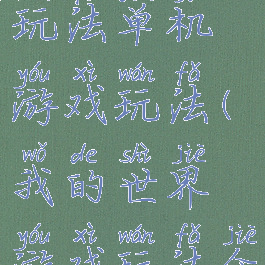 玩法单机
yóu xì wán fǎ
游戏玩法(
wǒ de shì jiè
我的世界
yóu xì wán fǎ jiě